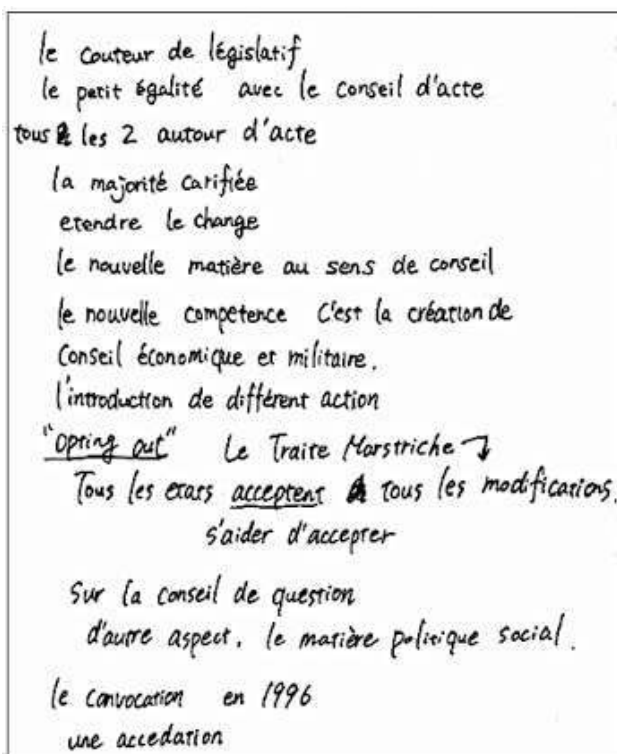 le couteur de législatif
le petit égalité avec le conseil d'acte
tous les 2 autour d'acte
la majorité carifiée
etendre le change
le nouvelle matière au sens de conseil
le nouvelle competence C'est la création de
Conseil économique et militaire.
l'introduction de différent action
"Opting out" Le Traite Marstriche
Tous les etats acceptent tous les modifications.
s'aider d'accepter
Sur la conseil de question
d'autre aspect. le matière politique social.
le convocation en 1996
une accedation